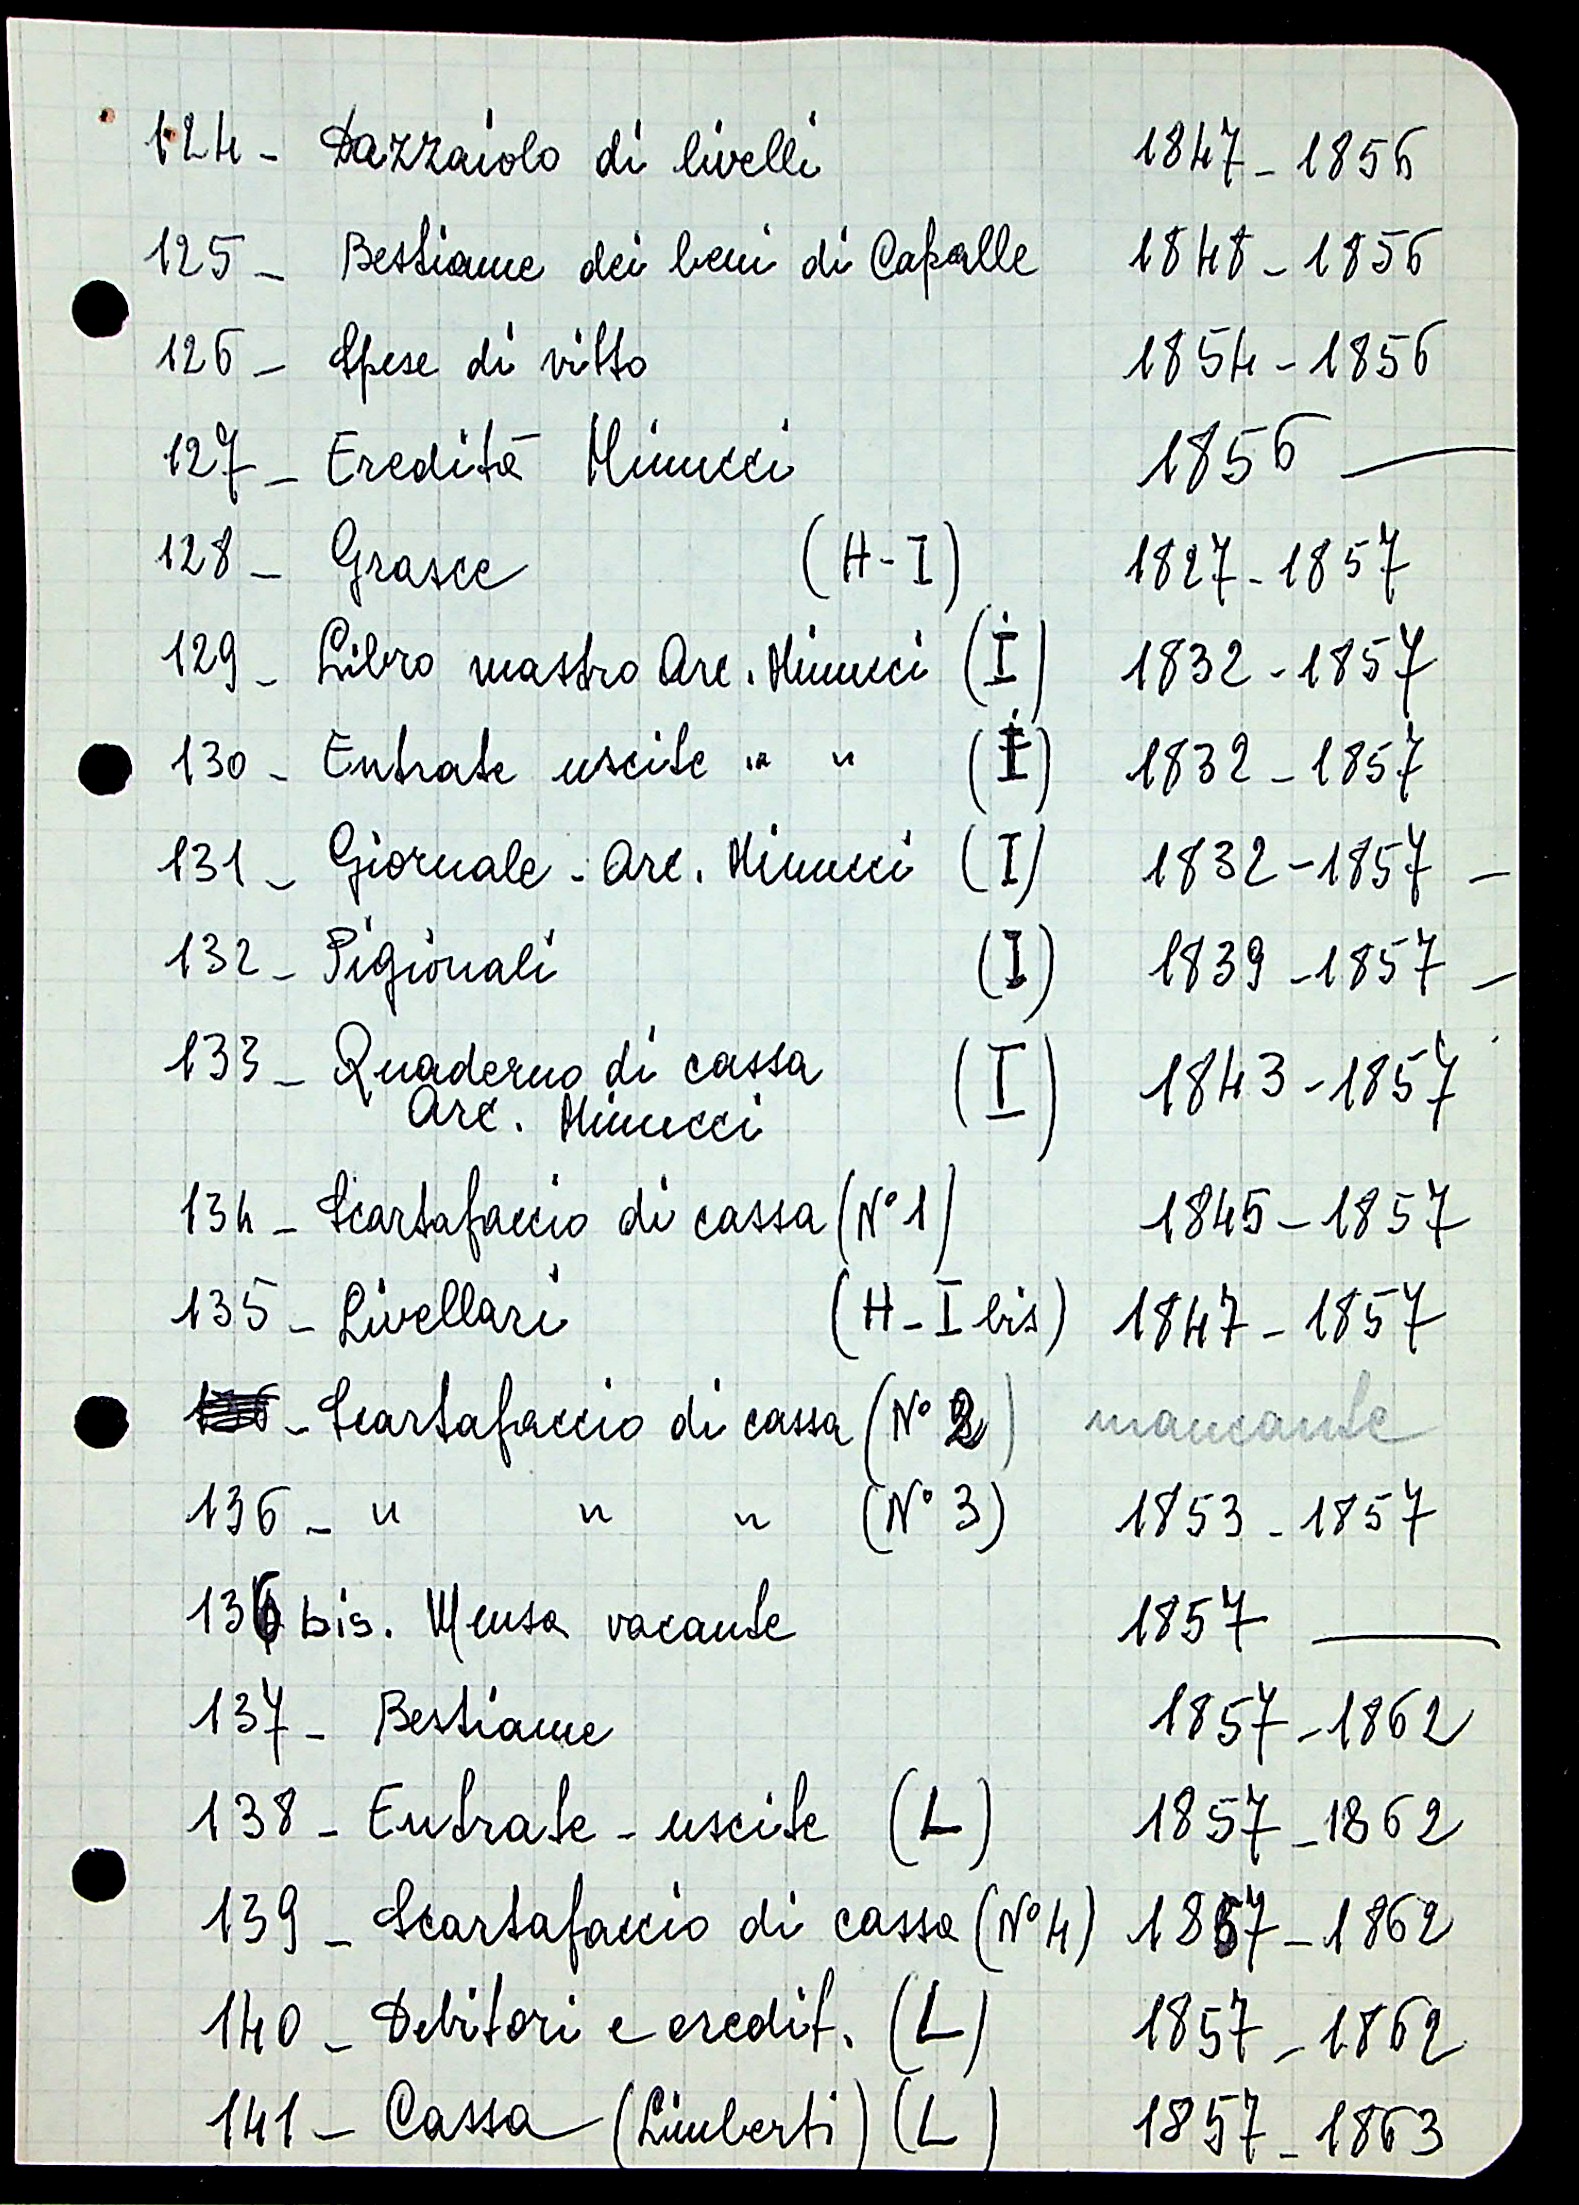 124 - Dazzaiolo di livelli 1847 - 1856
125 - Bestiame dei beni di Capalle 1848 - 1856
126 - Spese di vitto 1854 - 1856
127 - Eredità Minucci 1856 —
128 - Grasce (H - I) 1827 - 1857
129 - Libro mastro Arc. Minucci (I) 1832 - 1857
130 - Entrate uscite " " (I) 1832 - 1857
131 - Giornale - Arc. Minucci (I) 1832 - 1857 -
132 - Pigionali (I) 1839 - 1857 -
133 - Quaderno di cassa (I) 1843 - 1857
Arc. Minucci
134 - Scartafaccio di cassa (N° 1) 1845 - 1857
135 - Livellari (H - I bis) 1847 - 1857
- Scartafaccio di cassa (N° 2) mancante
136 - " " " (N° 3) 1853 - 1857
136 bis. Mensa vacante 1857 —
137 - Bestiame 1857 - 1862
138 - Entrate - uscite (L) 1857 - 1862
139 - Scartafaccio di cassa (N° 4) 1857 - 1862
140 - Debitori e credit. (L) 1857 - 1862
141 - Cassa (Limberti) (L) 1857 - 1863